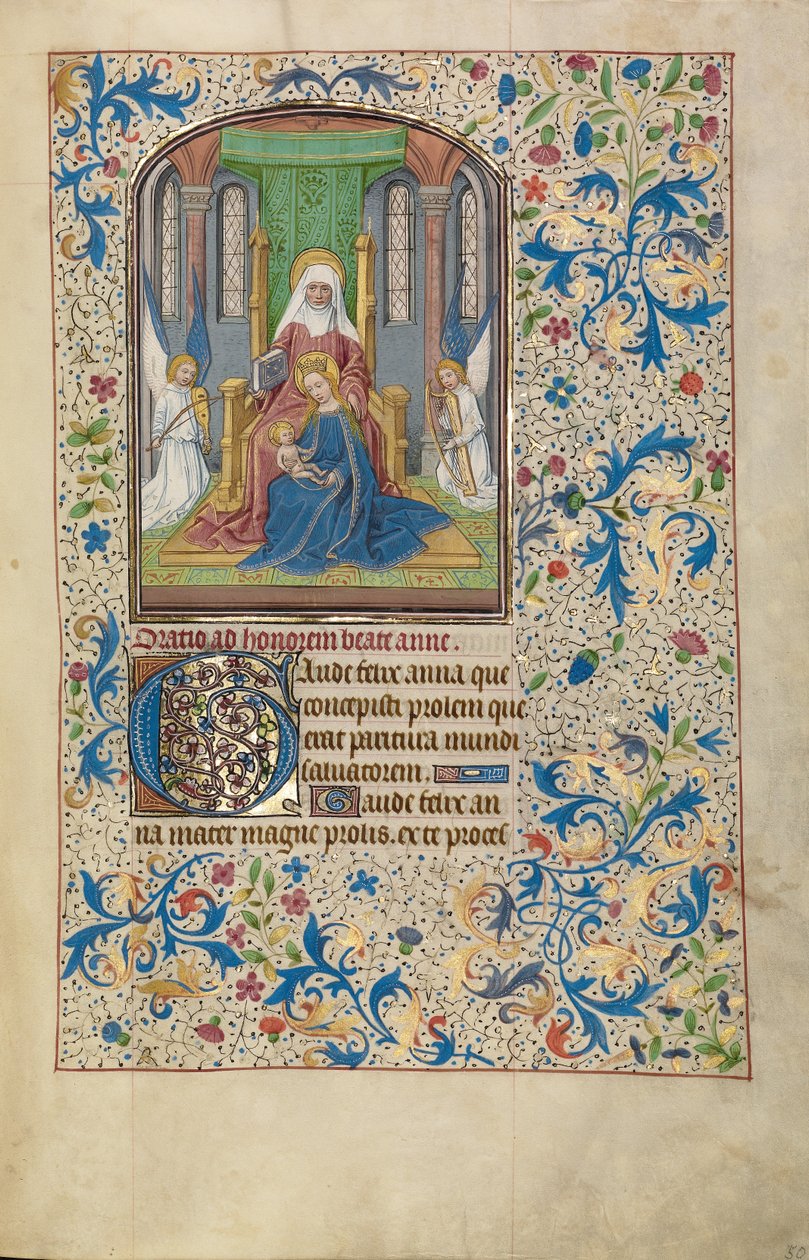 Oratio ad honorem beate anne.
Gaude felix anna que
concepisti prolem que
erat paritura mundi
saluatorem.
Gaude felix an
na mater magne prolis. ex te proces
50